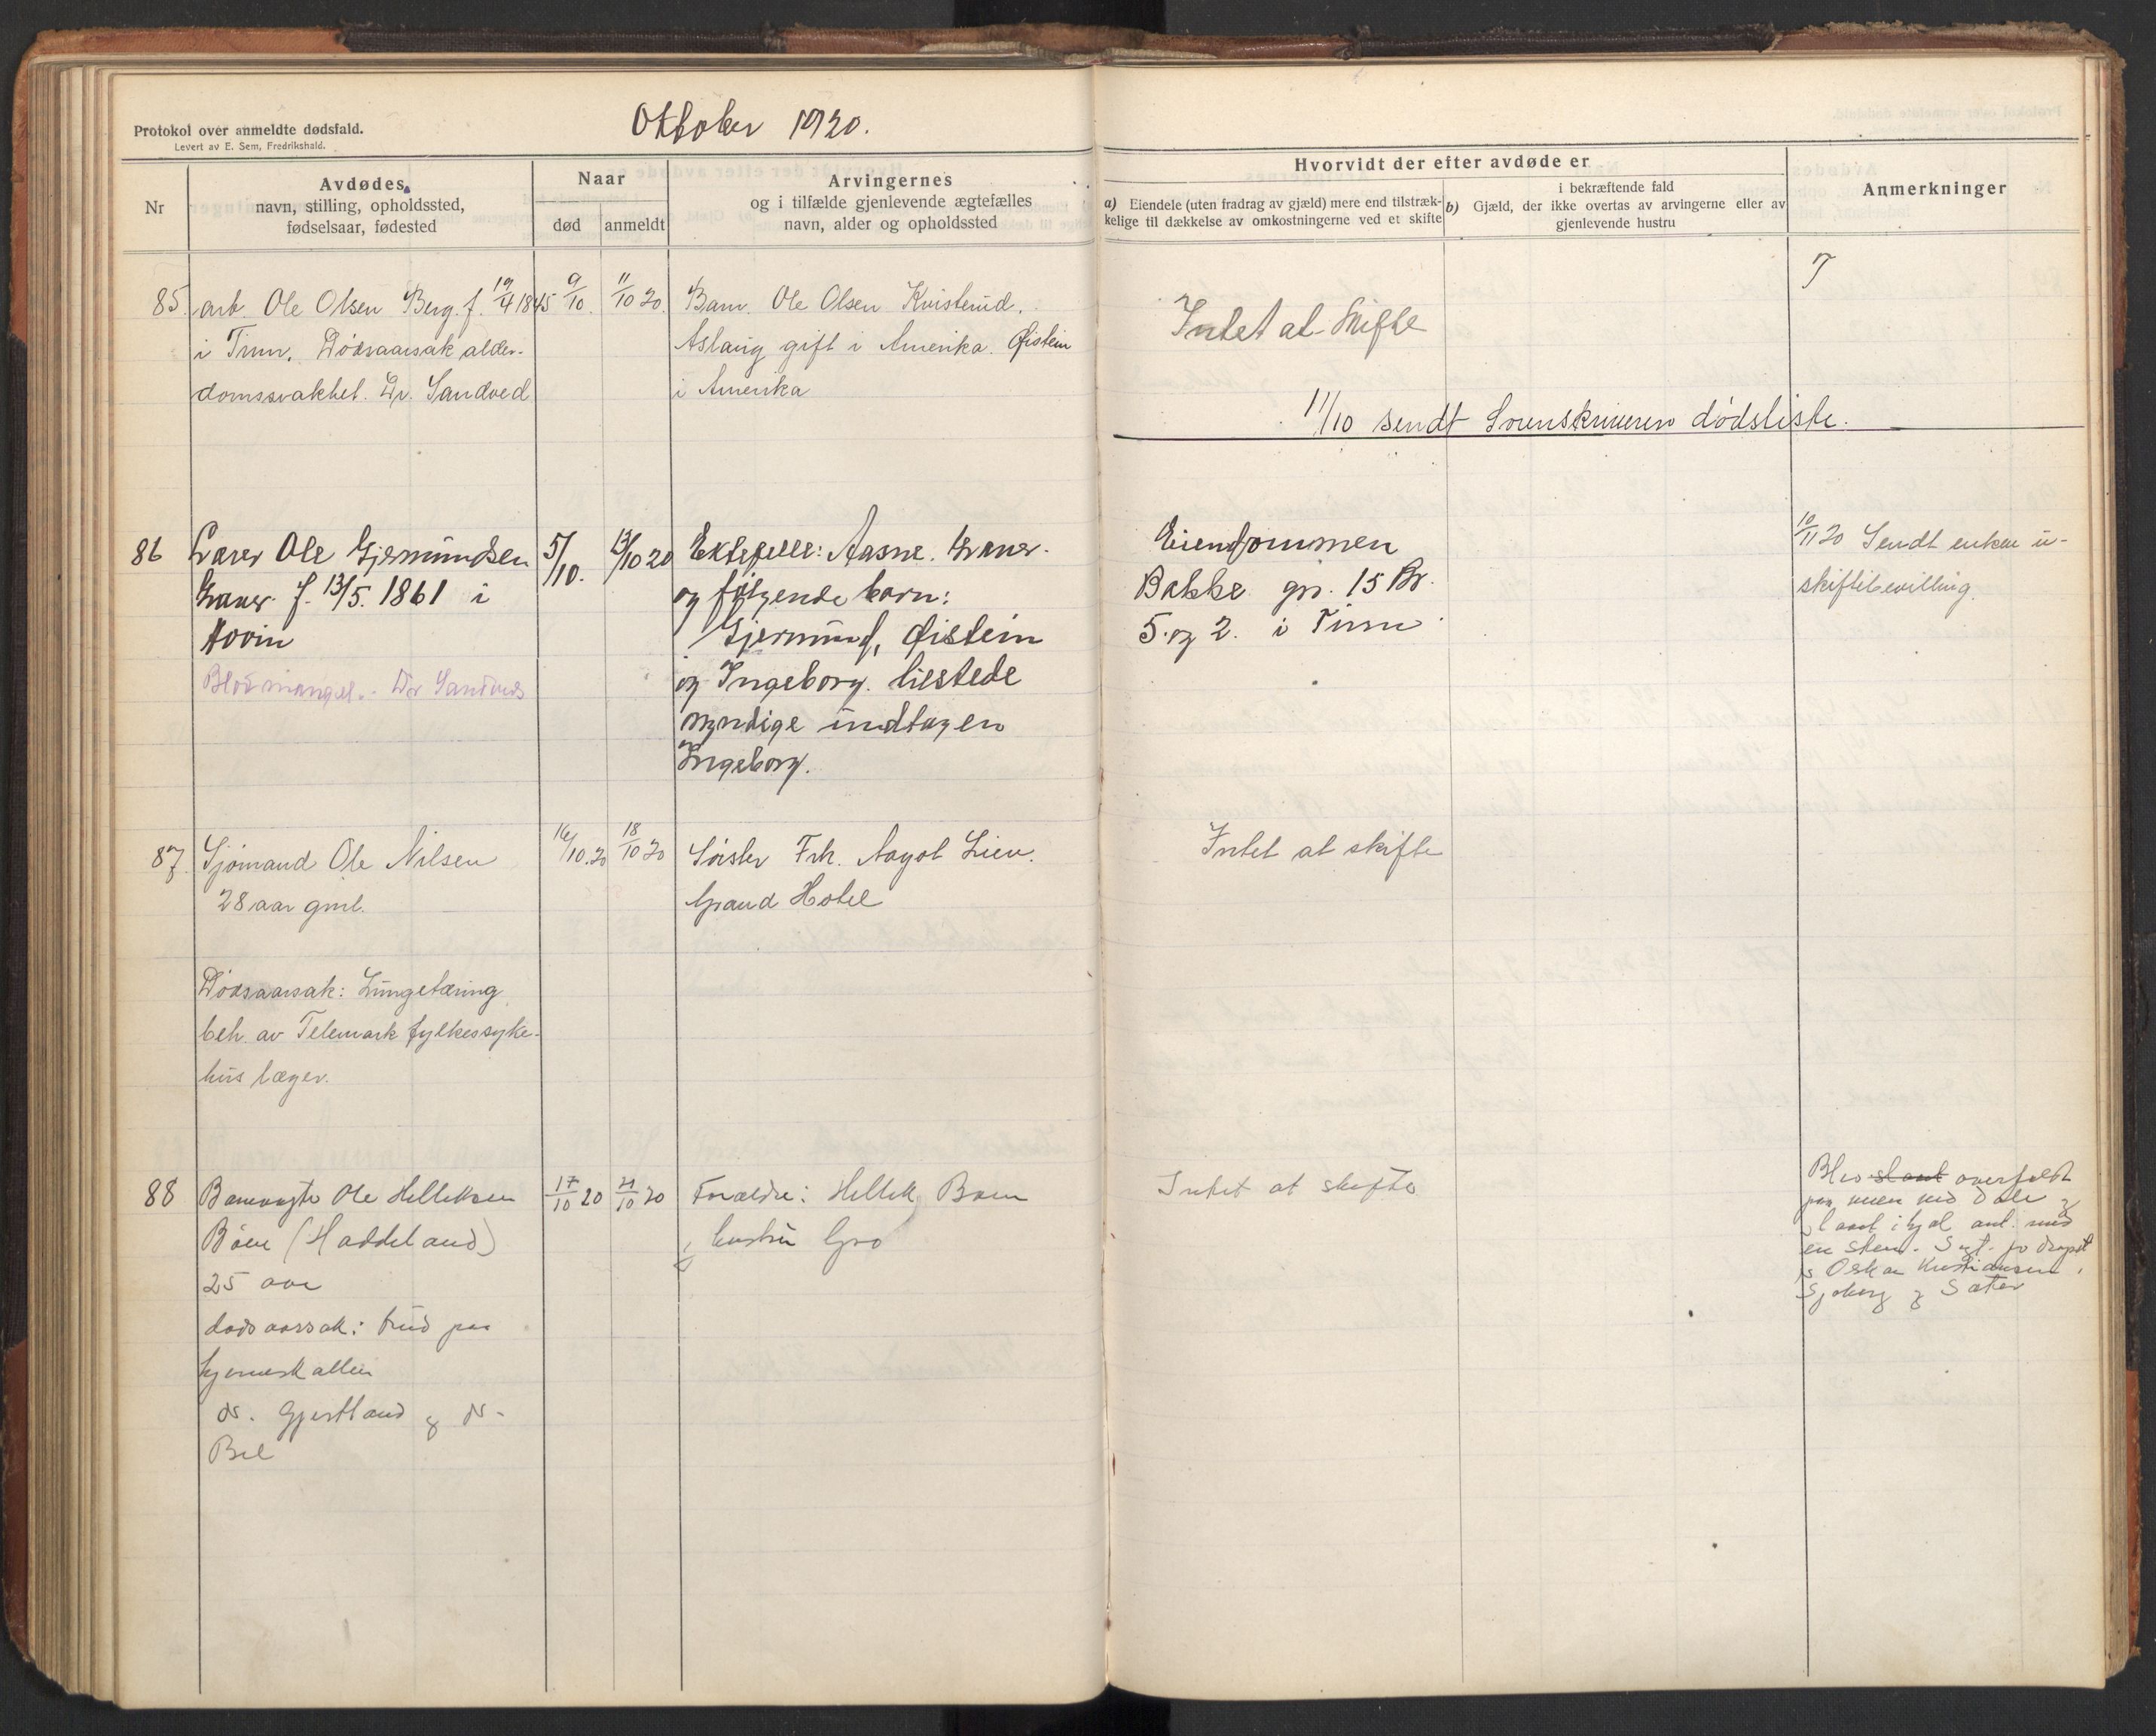 Protokol over anmeldte dødsfald.
Levert av E. Sem, Fredrikshald.
Oktober 1920.
Nr
Avdødes
navn, stilling, opholdssted,
fødselsaar, fødested
Naar
død
anmeldt
Arvingernes
og i tilfælde gjenlevende ægtefælles
navn, alder og opholdssted
Hvorvidt der efter avdøde er
a) Eiendele (uten fradrag av gjæld) mere end tilstræk-
kelige til dækkelse av omkostningerne ved et skifte
i bekræftende fald
b) Gjæld, der ikke overtas av arvingerne eller av
gjenlevende hustru
Anmerkninger
85. arb. Ole Olsen Berg. f. 19/4 1845
i Tinn. Dødsaarsak alder-
domssvakhet. Dr. Sandved
9/10.
11/10 20.
Barn. Ole Olsen Kvisterud.
Aslaug gift i Amerika. Øistein
i Amerika
Intet at skifte
11/10 sendt Sorenskriveren dødsliste.
86 Lærer Ole Gjermundsen
f. 13/5. 1861 i
Hovin
Blodmangel. Dr Sandved
5/10.
13/10 20
Ektefelle: Aasne
og følgende barn:
Gjermund, Øistein
og Ingeborg. hestede
myndige undtagen
Ingeborg.
Eiendommen
Bakke gn. 15 Br.
5 og 2. i Tinn
10/11 20 Sendt enken u-
skiftebevilling.
87. Sjømand Ole Nilsen
28 aar gml.
Dødsaarsak: Lungetæring
beh. av Telemark fylkessyke-
hus læger.
16/10.20
18/10 20
Søster Frk. Aagot Lien.
Grand Hotel
Intet at skifte
88 Banevogte Ole Helleksen
Bøen (Haddeland)
25 aar
dødsaarsak: brud paa
hjerneskallen
dr. Gjestland og dr.
17/10 20
21/10 20
Forældre: Hellek Bøen
og hustru Gro
Intet at skifte
Blev slaat overfaldt
paa veien ved Dale og
slaat ihjel ant. med
en sten. Sigt. for drapet
er Oskar Kristiansen,
Sjøberg og Sæter